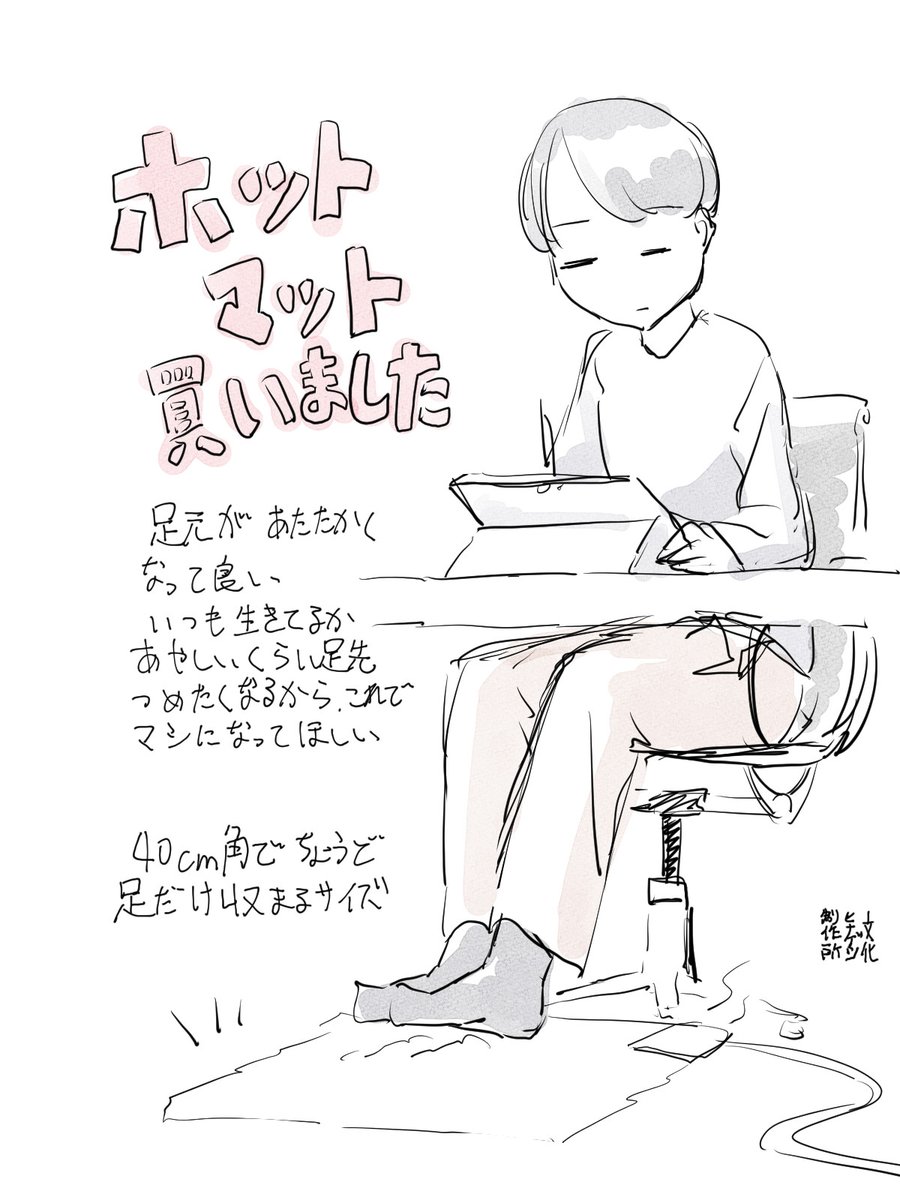 ホット
マット
買いました
足元があたたかく
なって良い
いつも生きてるか
あやしいくらい足先
つめたくなるから、これで
マシになってほしい
40cm角でちょうど
足だけ収まるサイズ
創作所